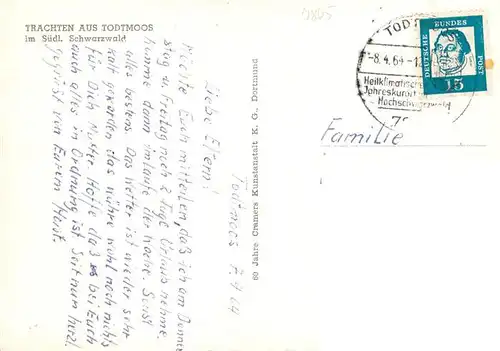 TRACHTEN AUS TODTMOOS
im Südl. Schwarzwald
Todtmoos 7.4.64
Liebe Eltern!
Möchte Euch mitteilen, daß ich am Donners
stag u. Freitag noch 2 Tage Urlaub nehme.
Komme dann im laufe der Woche. Sonst
alles bestens. Das Wetter ist wieder sehr
kalt geworden das währe wohl noch nichts
für Dich Mutter. Hoffe daß es bei Euch
auch alles in Ordnung ist. Seit nun herzl.
gegrüst von Eurem Horst.
60 Jahre Cramers Kunstanstalt K. G., Dortmund
TODT
-8.4.64-1
Heilklimatischer
Jahreskurort
Hochschwarzwald
DEUTSCHE
BUNDES
POST
15
Familie